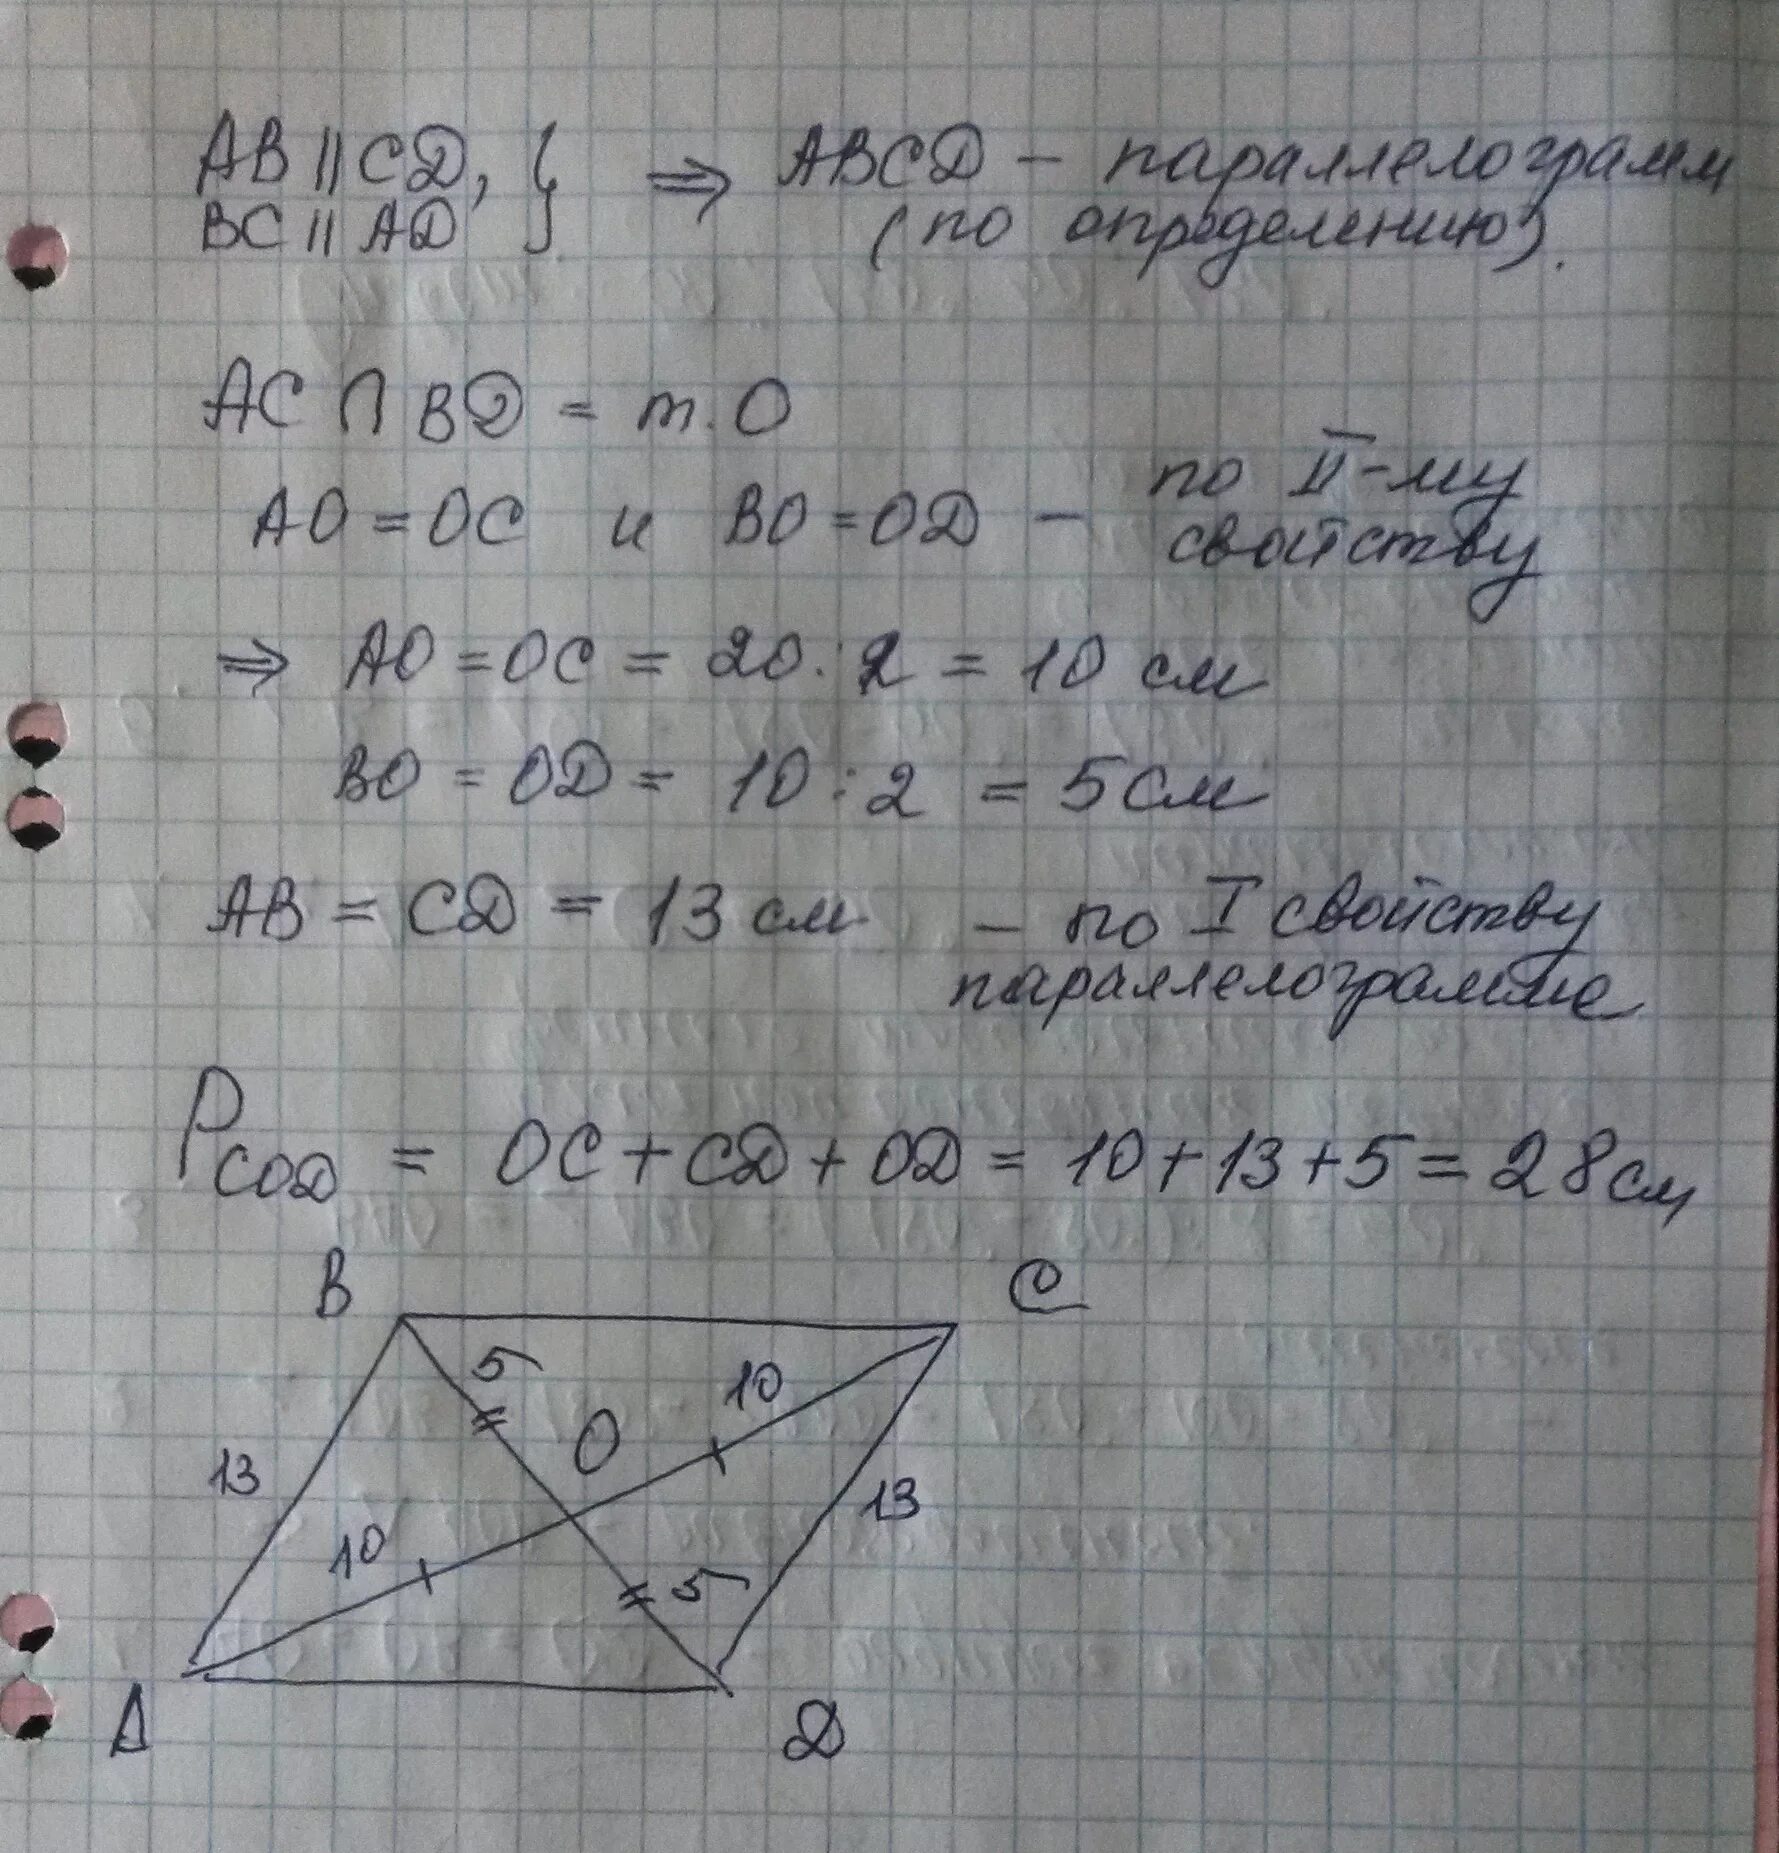 AB || CD, } ⇒ ABCD – параллелограмм
BC || AD (по определению).
AC ∩ BD = т. O
AO = OC и BO = OD – по II-му свойству
⇒ AO = OC = 20 : 2 = 10 см
BO = OD = 10 : 2 = 5 см
AB = CD = 13 см – по I свойству
параллелограмме
P COD = OC + CD + OD = 10 + 13 + 5 = 28 см
B C
5 10
O
13 13
10 5
A D